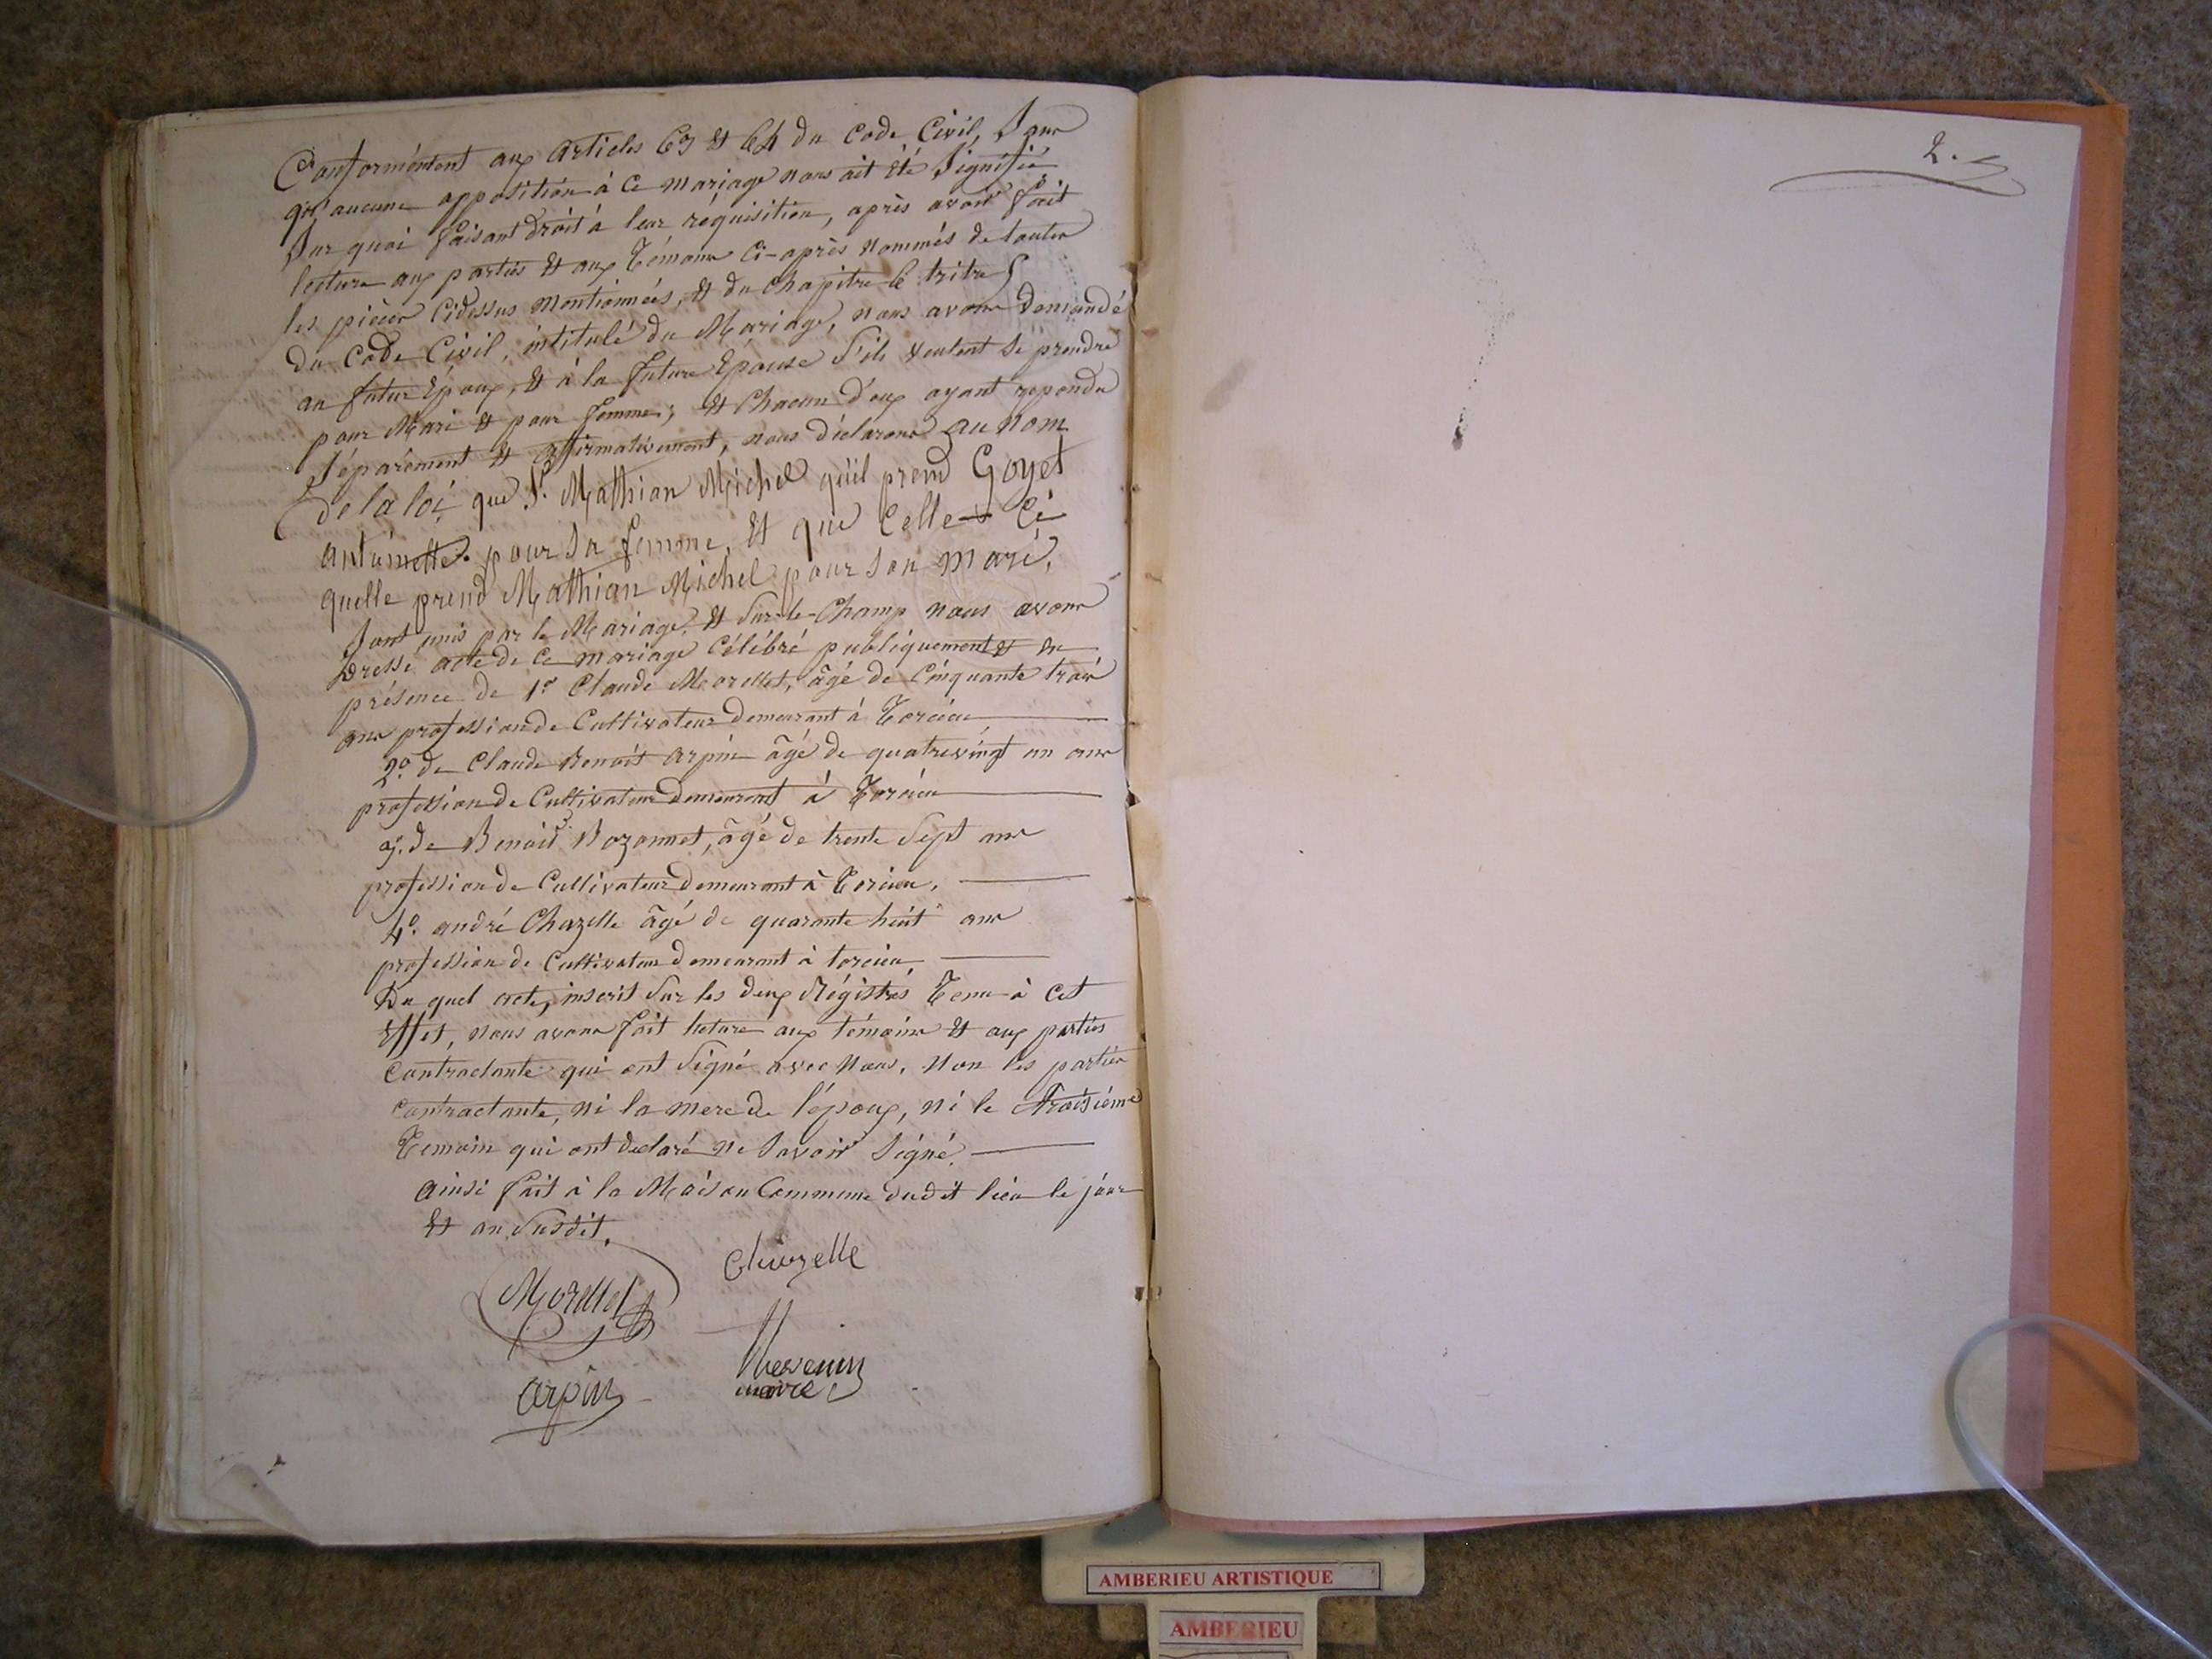 Conformément aux articles 63 et 64 du code Civil, Sans
qu'aucune opposition à ce mariage nous ait été Signifié
Sur quoi faisant droit à leur réquisition, après avoir fait
lecture aux parties et aux Témoins ci-après nommés de toutes
les pièces Cidessus mentionnées, et du chapitre 6 titre 5
du Code Civil, intitulé du Mariage, nous avons demandé
au futur Époux, et à la future Epouse S'ils veulent se prendre
pour Mari et pour femme; et Chacun d'eux ayant repondu
Séparément et affirmativement, nous déclarons au nom
de la loi, que Sr. Mathian Michel qu'il prend Goyet
antoinette. pour sa femme, Et que Celle-Ci
quelle prend Mathian Michel pour son mari,
Sont unis par le Mariage, et Sur-le-Champ nous avons
dressé acte de ce mariage célébré publiquement et en
présence de 1o Claude Morellet, âgé de Cinquante trois
ans profession de Cultivateur demeurant à Torcieu
2o. de Claude Benoit arpin âgé de quatrevingt un ans
profession de Cultivateur demeurant à Torcieu
3. de Benoit Bozonnet, âgé de trente Sept ans
profession de Cultivateur demeurant à Torcieu,
4o. andré Chazelle âgé de quarante huit ans
profession de Cultivateur demeurant à torcieu,
Du quel acte, inscrit sur les deux Régistrés Tenu à cet
Effet, nous avons fait lecture aux témoins et aux parties
Contractante qui ont Signé avec nous, non les parties
Contractante, ni la mere de l'époux, ni le troisième
Temoin qui ont declaré ne Savoir Signé.
ainsi fait à la Maison Commune dudit lieu le jour
Et an Susdit.
Chazelle
Morellet
Thevenin
arpin
maire
2.
AMBERIEU ARTISTIQUE
AMBERIEU